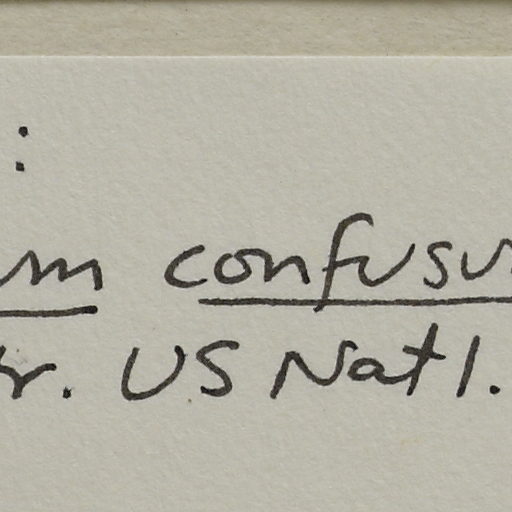 :
um confusu
tr. US Nat'l.